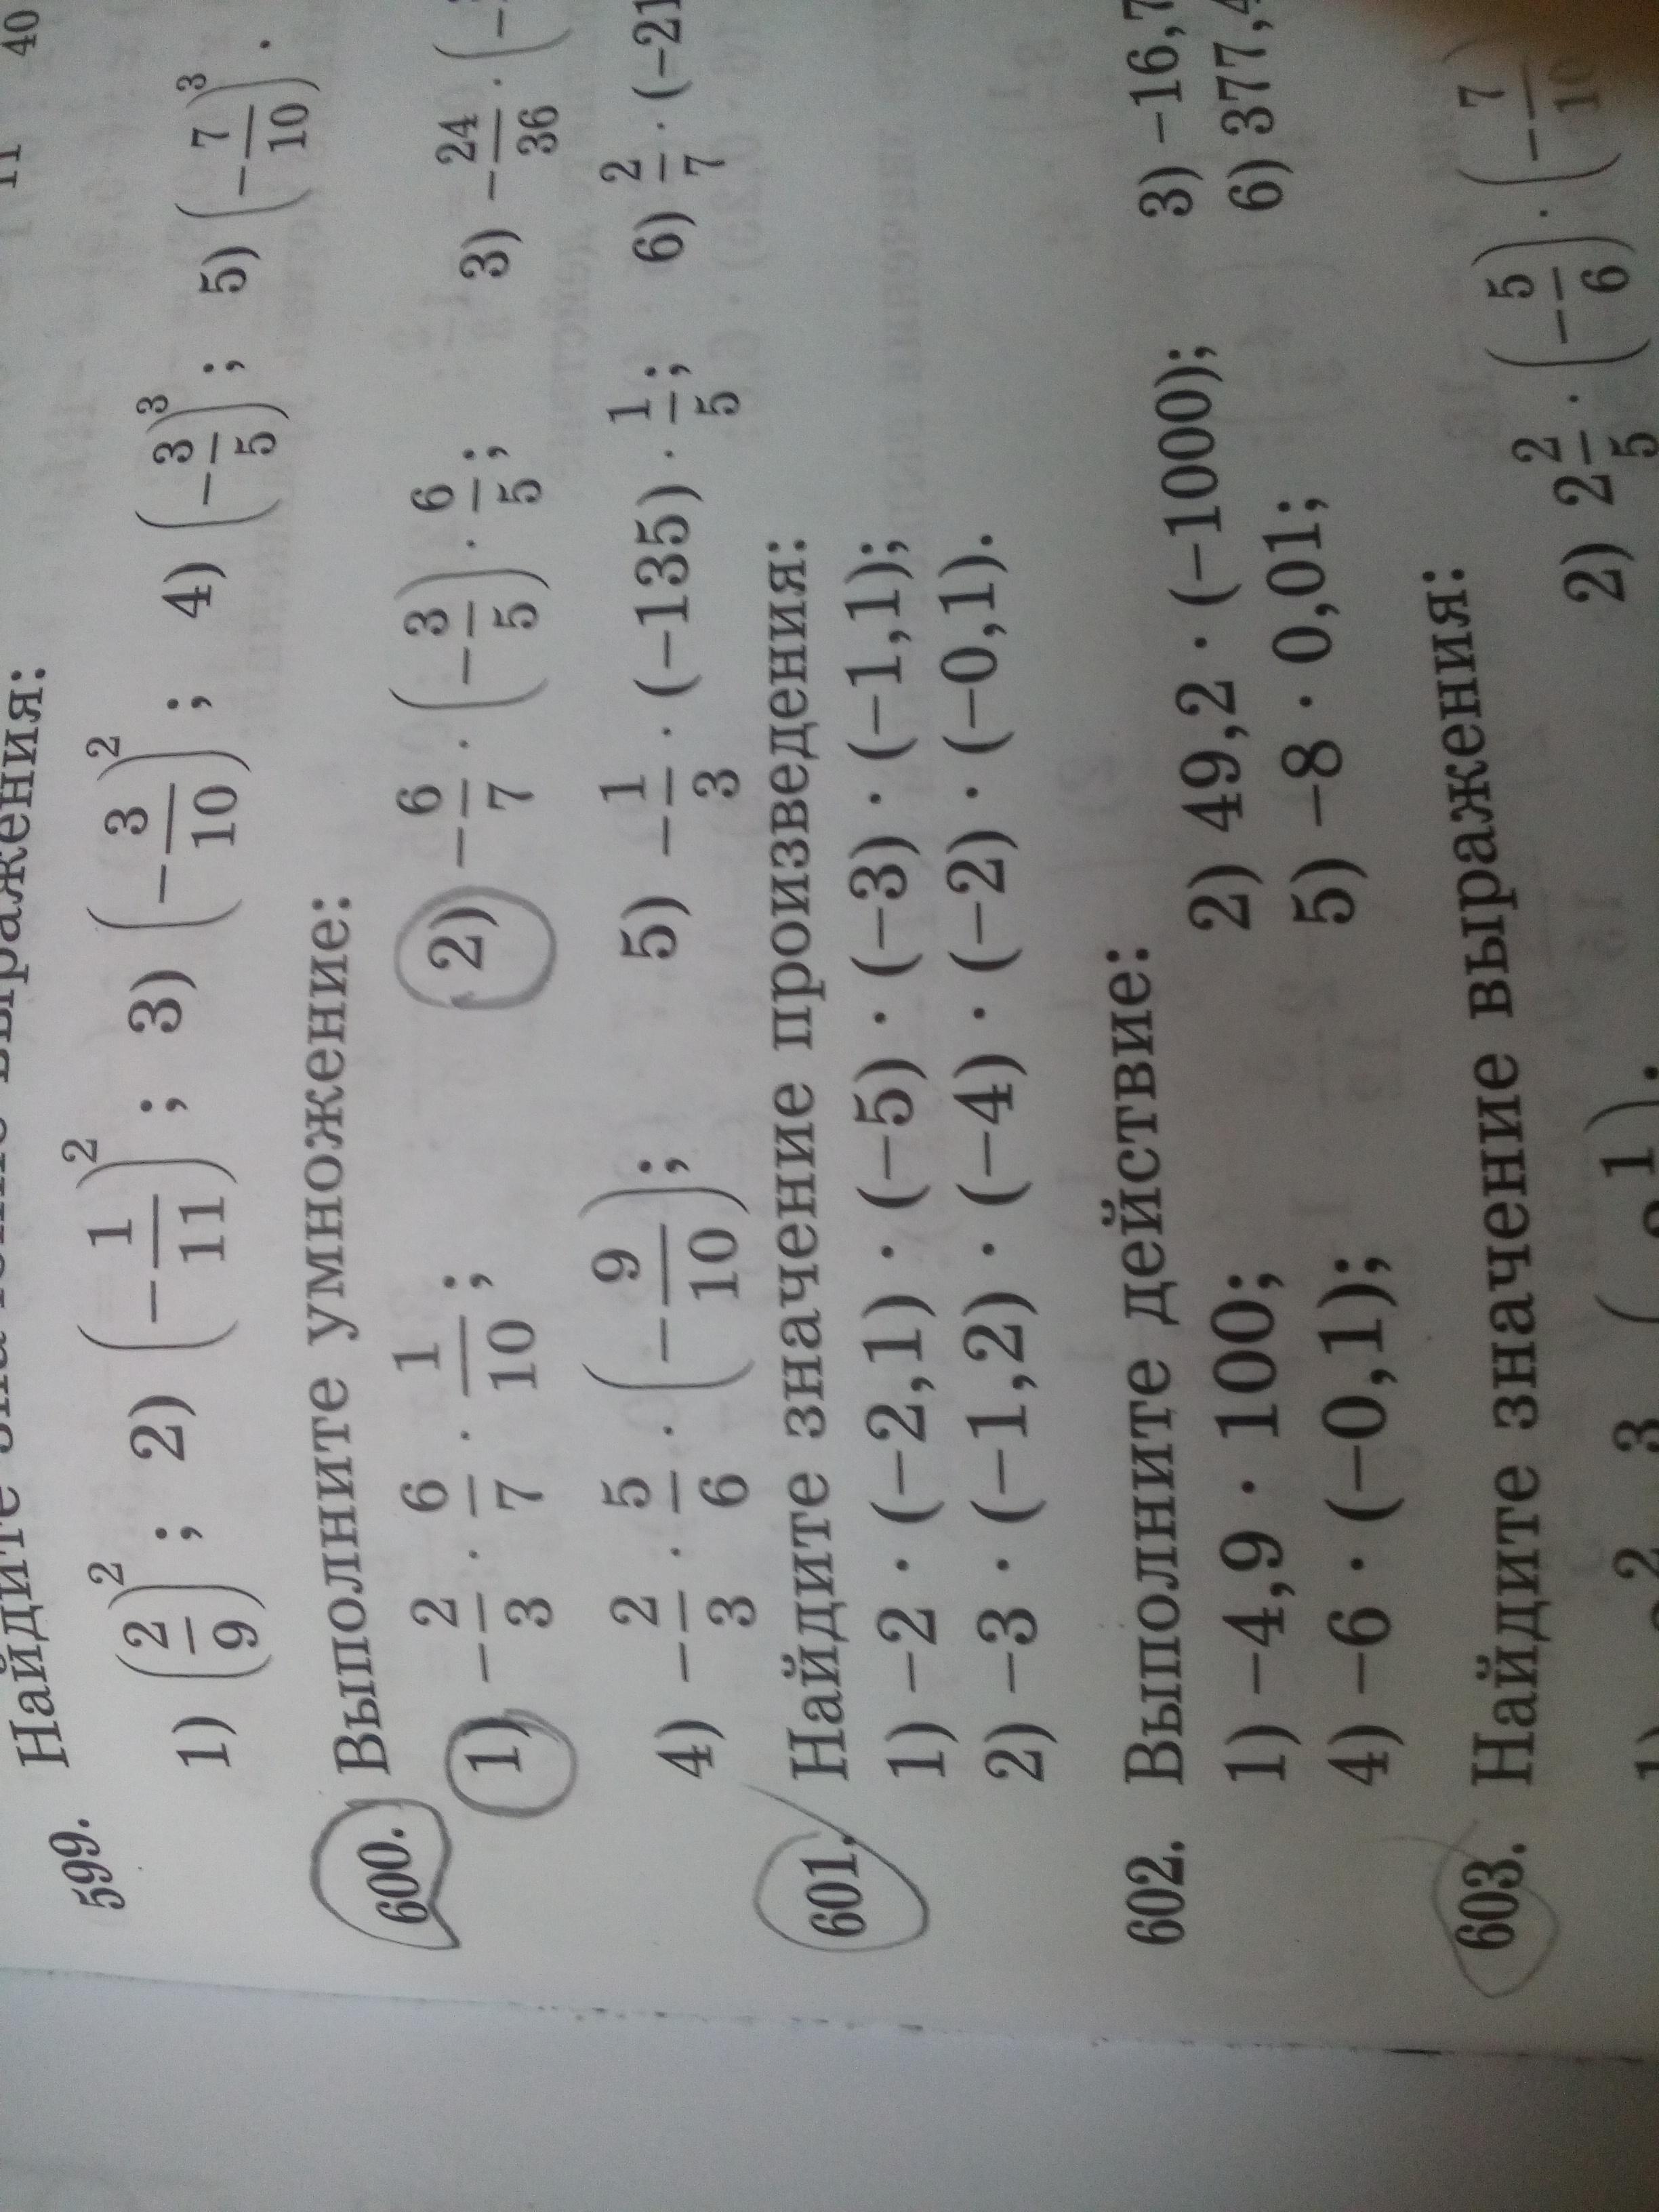 11 40
599. Найдите значение выражения:
1) (2/9)²; 2) (−1/11)²; 3) (−3/10)²; 4) (−3/5)³; 5) (−7/10)³.
600. Выполните умножение:
1) −2/3 · 6/7 · 1/10; 2) −6/7 · (−3/5) · 6/5; 3) −24/36 · (−
4) −2/3 · 5/6 · (−9/10); 5) −1/3 · (−135) · 1/5; 6) 2/7 · (−21
601. Найдите значение произведения:
1) −2 · (−2,1) · (−5) · (−3) · (−1,1);
2) −3 · (−1,2) · (−4) · (−2) · (−0,1).
602. Выполните действие:
1) −4,9 · 100; 2) 49,2 · (−1000); 3) −16,7
4) −6 · (−0,1); 5) −8 · 0,01; 6) 377,4
603. Найдите значение выражения:
2) 2 2/5 · (−5/6) · (−7/10)